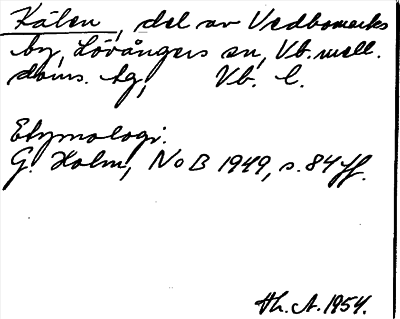 Kälen, del av Vedbomarks
by, Lövångers sn, Vb. mell.
doms. tg, Vb. l.
Etymologi.
G. Holm, NoB 1949, s. 84 ff.
Hh. A. 1954.